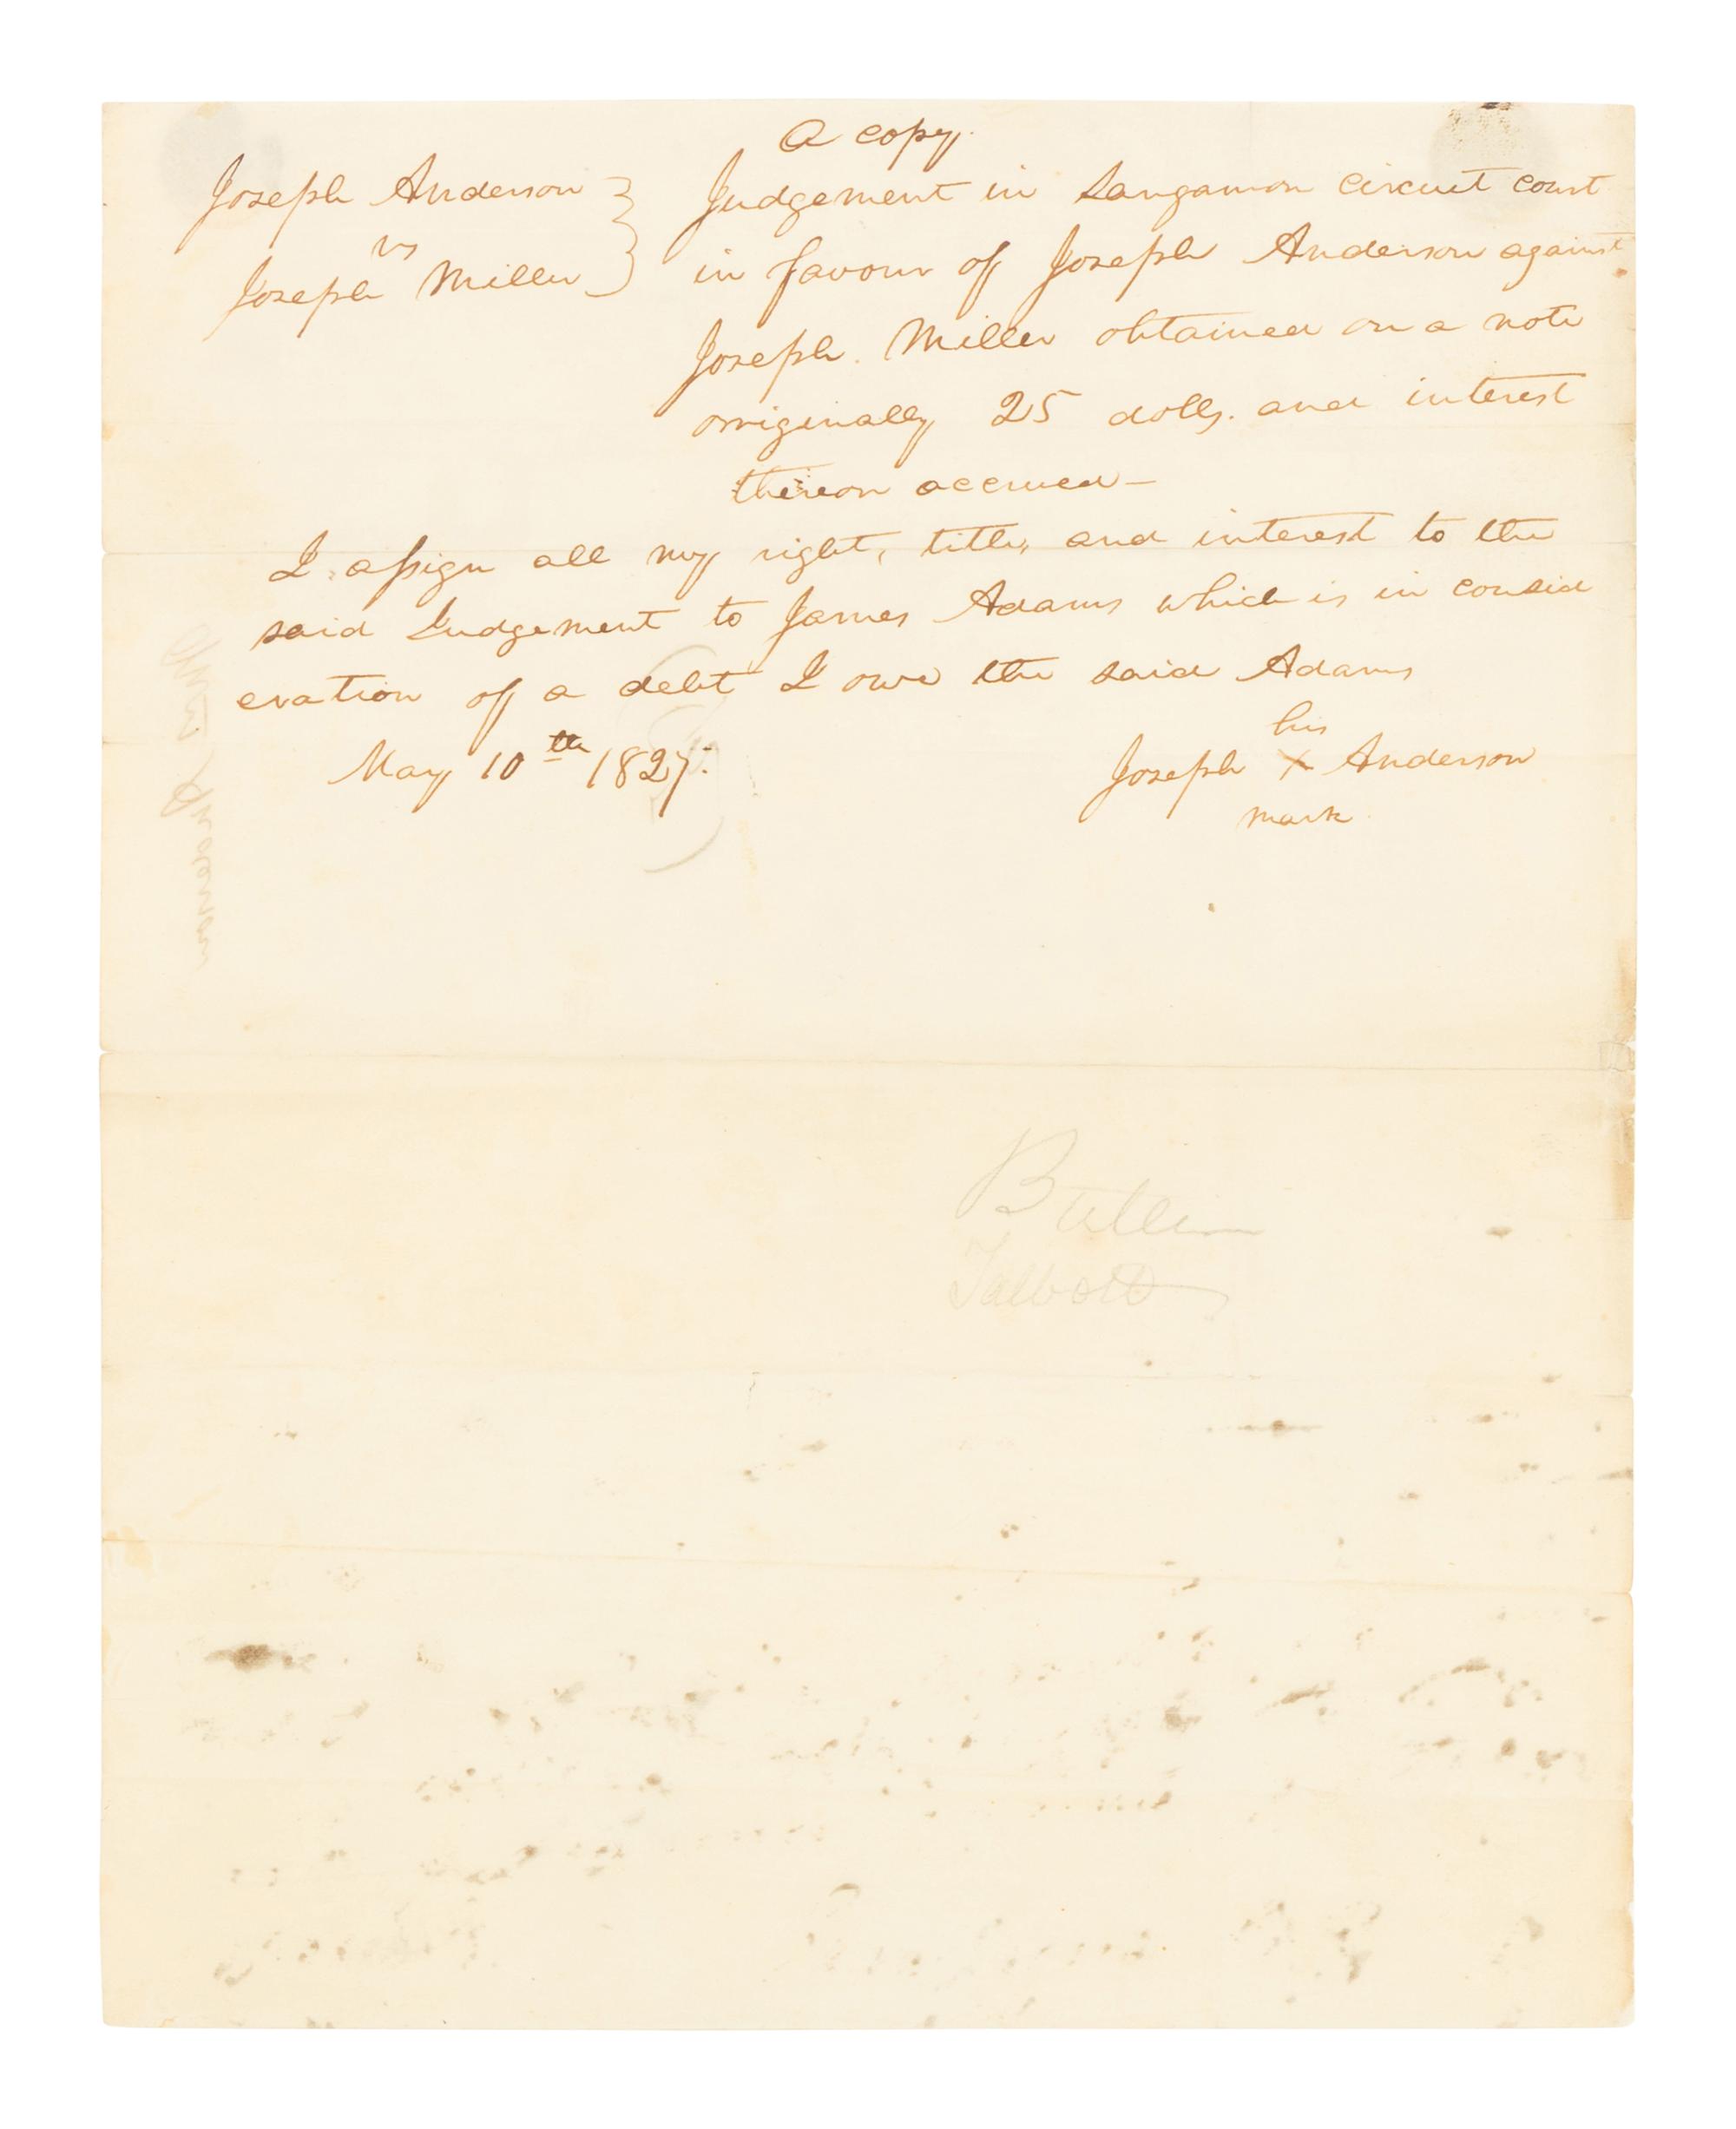 A copy.
Joseph Anderson
vs
Joseph Miller
Judgement in Sangamon circuit court
in favour of Joseph Anderson against
Joseph. Miller obtained on a note
orriginally 25 dolls. and interest
thereon accrued—
I assign all my right, title, and interest to the
said Judgement to James Adams which is in consid
eration of a debt I owe the said Adams
May 10th 1827.
his
Joseph X Anderson
mark
Talbott